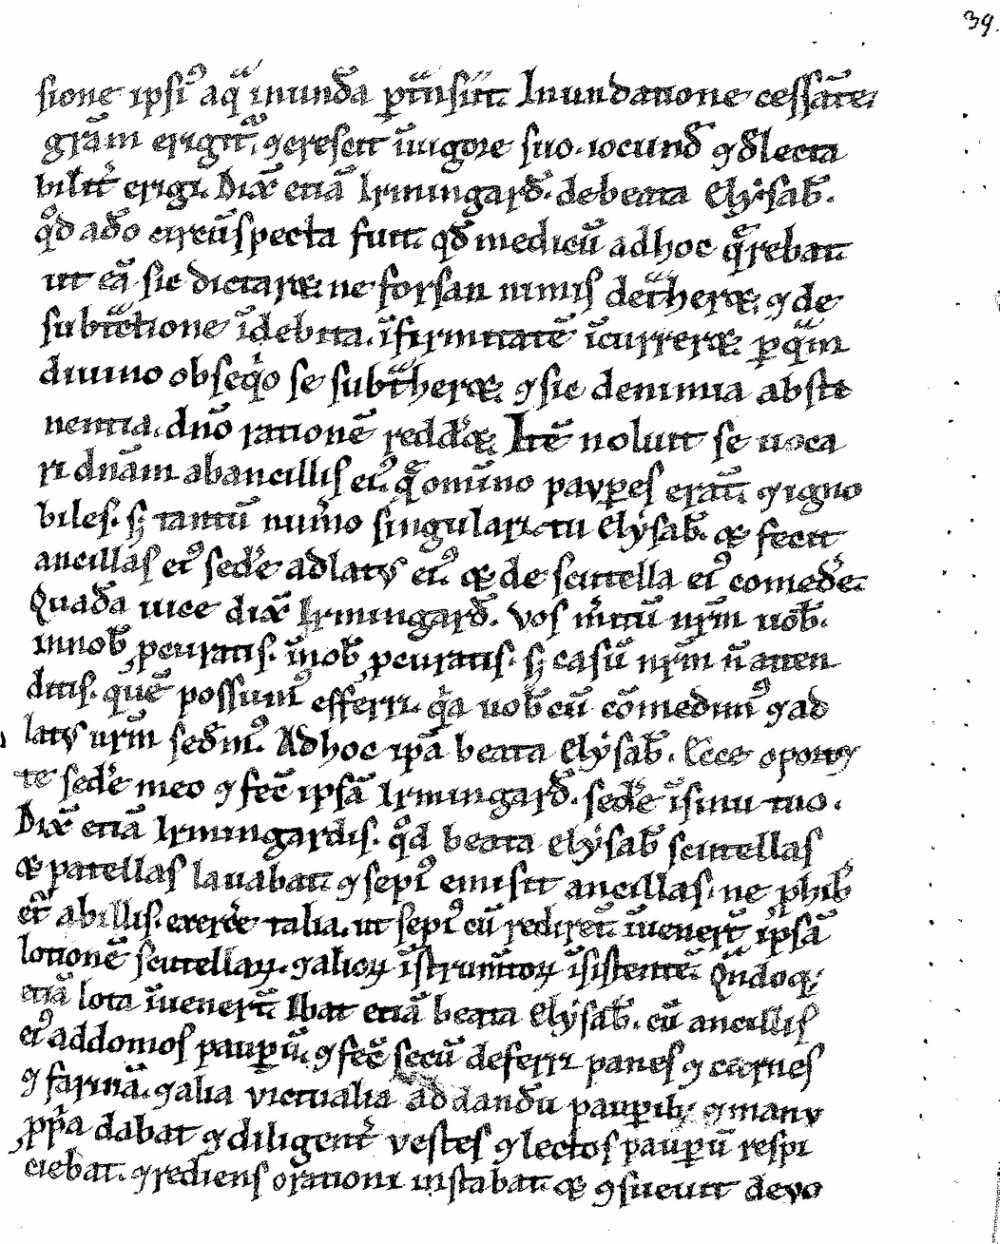 39.
sione ipsiꝰ aq̃ inundãa p̄tͣnsiit. Inundatione cessãte.
grãm erigit̃, ꝯcrescit ĩuigore suo. iocund̃ ⁊ đlecta
bilit̃ erigi. Dix̃ etiã Irmingard̃. de beata Elẏsab̃.
qđ adõ circũspecta fuit. qđ medicũ adhoc q̃rebat.
ut eã sic dictaret. ne forsan nimis detͣheret. ⁊ de
subtͣctione ĩdebita. ĩfirmitatẽ ĩcurreret. p̱q̃m
diuino obseq̇o se subtͣheret. ⁊ sic de nimia absti
nentia. dño rationẽ redd̃et. Itẽ noluit se uoca
ri dñam abancillis eiꝰ. q̃ omĩno paup̱es erãt. ⁊ igno
biles. sꝫ tantũ num̃o singulari. tu Elẏsab̃. et fecit
ancillas eiꝰ sed̃e adlatꝰ eiꝰ. et de scutella eiꝰ comed̃e.
Quad̃a uice dix̃ Irmingard̃. Vos m̃itũ nr̃m uob̃.
innob̃ ꝓcuratis. ĩnob̃ ꝓcuratis. sꝫ casũ nr̃m ñ atten
ditis. quẽ possumꝰ efferri. q̇a uob̃cũ cõmedimꝰ ⁊ ad
latꝰ ur̃m sed̃mꝰ. Adhoc ip̃a beata Elẏsab̃. Ecce oportꝫ
te sed̃e meo ⁊ fec̃ ipsã Irmingard̃. sed̃e ĩsinu tuo.
Dix̃ etiã Irmingardis. qđ beata elẏsab̃ scutellas
et patellas lauabat. ⁊ sepiꝰ emisit ancillas. ne phib̃
et̃ abillis. exerc̃e talia. ut sepiꝰ cũ redirẽt ĩuenert̃ ipsã
lotionẽ scutellaꝝ. ⁊ alioꝝ ĩstrum̃toꝝ ĩsistentẽ. Qñdoqꝫ
etiã lota ĩuenerũt. Ibat etiã beata Elẏsab̃. cũ ancillis
eiꝰ addomos paup̱ũ. ⁊ fec̃ secũ deferri panes ⁊ carnes
⁊ farinã. ⁊ alia victualia ad dandũ paup̱ibꝫ ⁊ manu
ꝓp̃a dabat ⁊ diligent̃ vestes ⁊ lectos paup̱ũ respi
ciebat. ⁊ rediens orationi instabat. et ꝯsueuit devo